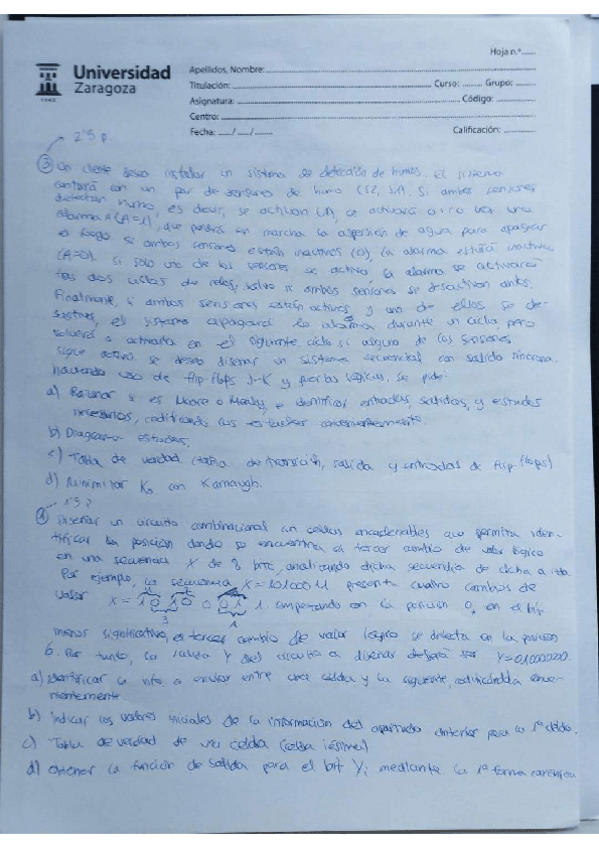 Hoja n.º
Universidad
Zaragoza
1542
Apellidos, Nombre:
Titulación: Curso: Grupo:
Asignatura: Código:
Centro:
Fecha: / / Calificación:
2'5 p.
③ Un cliente desea instalar un sistema de detección de humos. El sistema
contará con un par de sensores de humo (S2, S1). Si ambos sensores
detectan humo, es decir, se activan (1), se activará a su vez una
alarma A (A=1), que pondrá en marcha la aspersión de agua para apagar
el fuego. Si ambos sensores están inactivos (0), la alarma estará inactiva
(A=0). Si solo uno de los sensores se activa la alarma se activará
tras dos ciclos de reloj, salvo si ambos sensores se desactivan antes.
Finalmente, si ambos sensores están activos y uno de ellos se de-
sactiva, el sistema apagará la alarma durante un ciclo, pero
volverá a activarla en el siguiente ciclo si alguno de los sensores
sigue activo. Se desea diseñar un sistema secuencial con salida síncrona,
haciendo uso de flip-flops J-K y puertas lógicas. Se pide:
a) Razonar si es Moore o Mealy, e identificar entradas, salidas, y estados
necesarios, codificando los estados convenientemente.
b) Diagrama estados.
c) Tabla de verdad (tabla de transición, salida y entradas de flip-flops)
d) Minimizar K₀ con Karnaugh.
1'5 p
④ Diseñar un circuito combinacional con celdas encadenables que permita iden-
tificar la posición donde se encuentra el tercer cambio de valor lógico
en una secuencia X de 8 bits, analizando dicha secuencia de dcha a izda.
Por ejemplo, la secuencia X=10100011 presenta cuatro cambios de
valor X = 1 0 1 0 0 0 1 1. Empezando en la posición 0, en el bit
3 1
menos significativo, el tercer cambio de valor lógico se detecta en la posición
6. Por tanto, la salida Y del circuito a diseñar deberá ser Y=01000000.
a) Identificar la info a enviar entre una celda y la siguiente, codificándola conve-
nientemente
b) Indicar los valores iniciales de la información del apartado anterior para la 1ª celda.
c) Tabla de verdad de una celda (celda iésima)
d) Obtener la función de salida para el bit Yi mediante la 1ª forma canónica